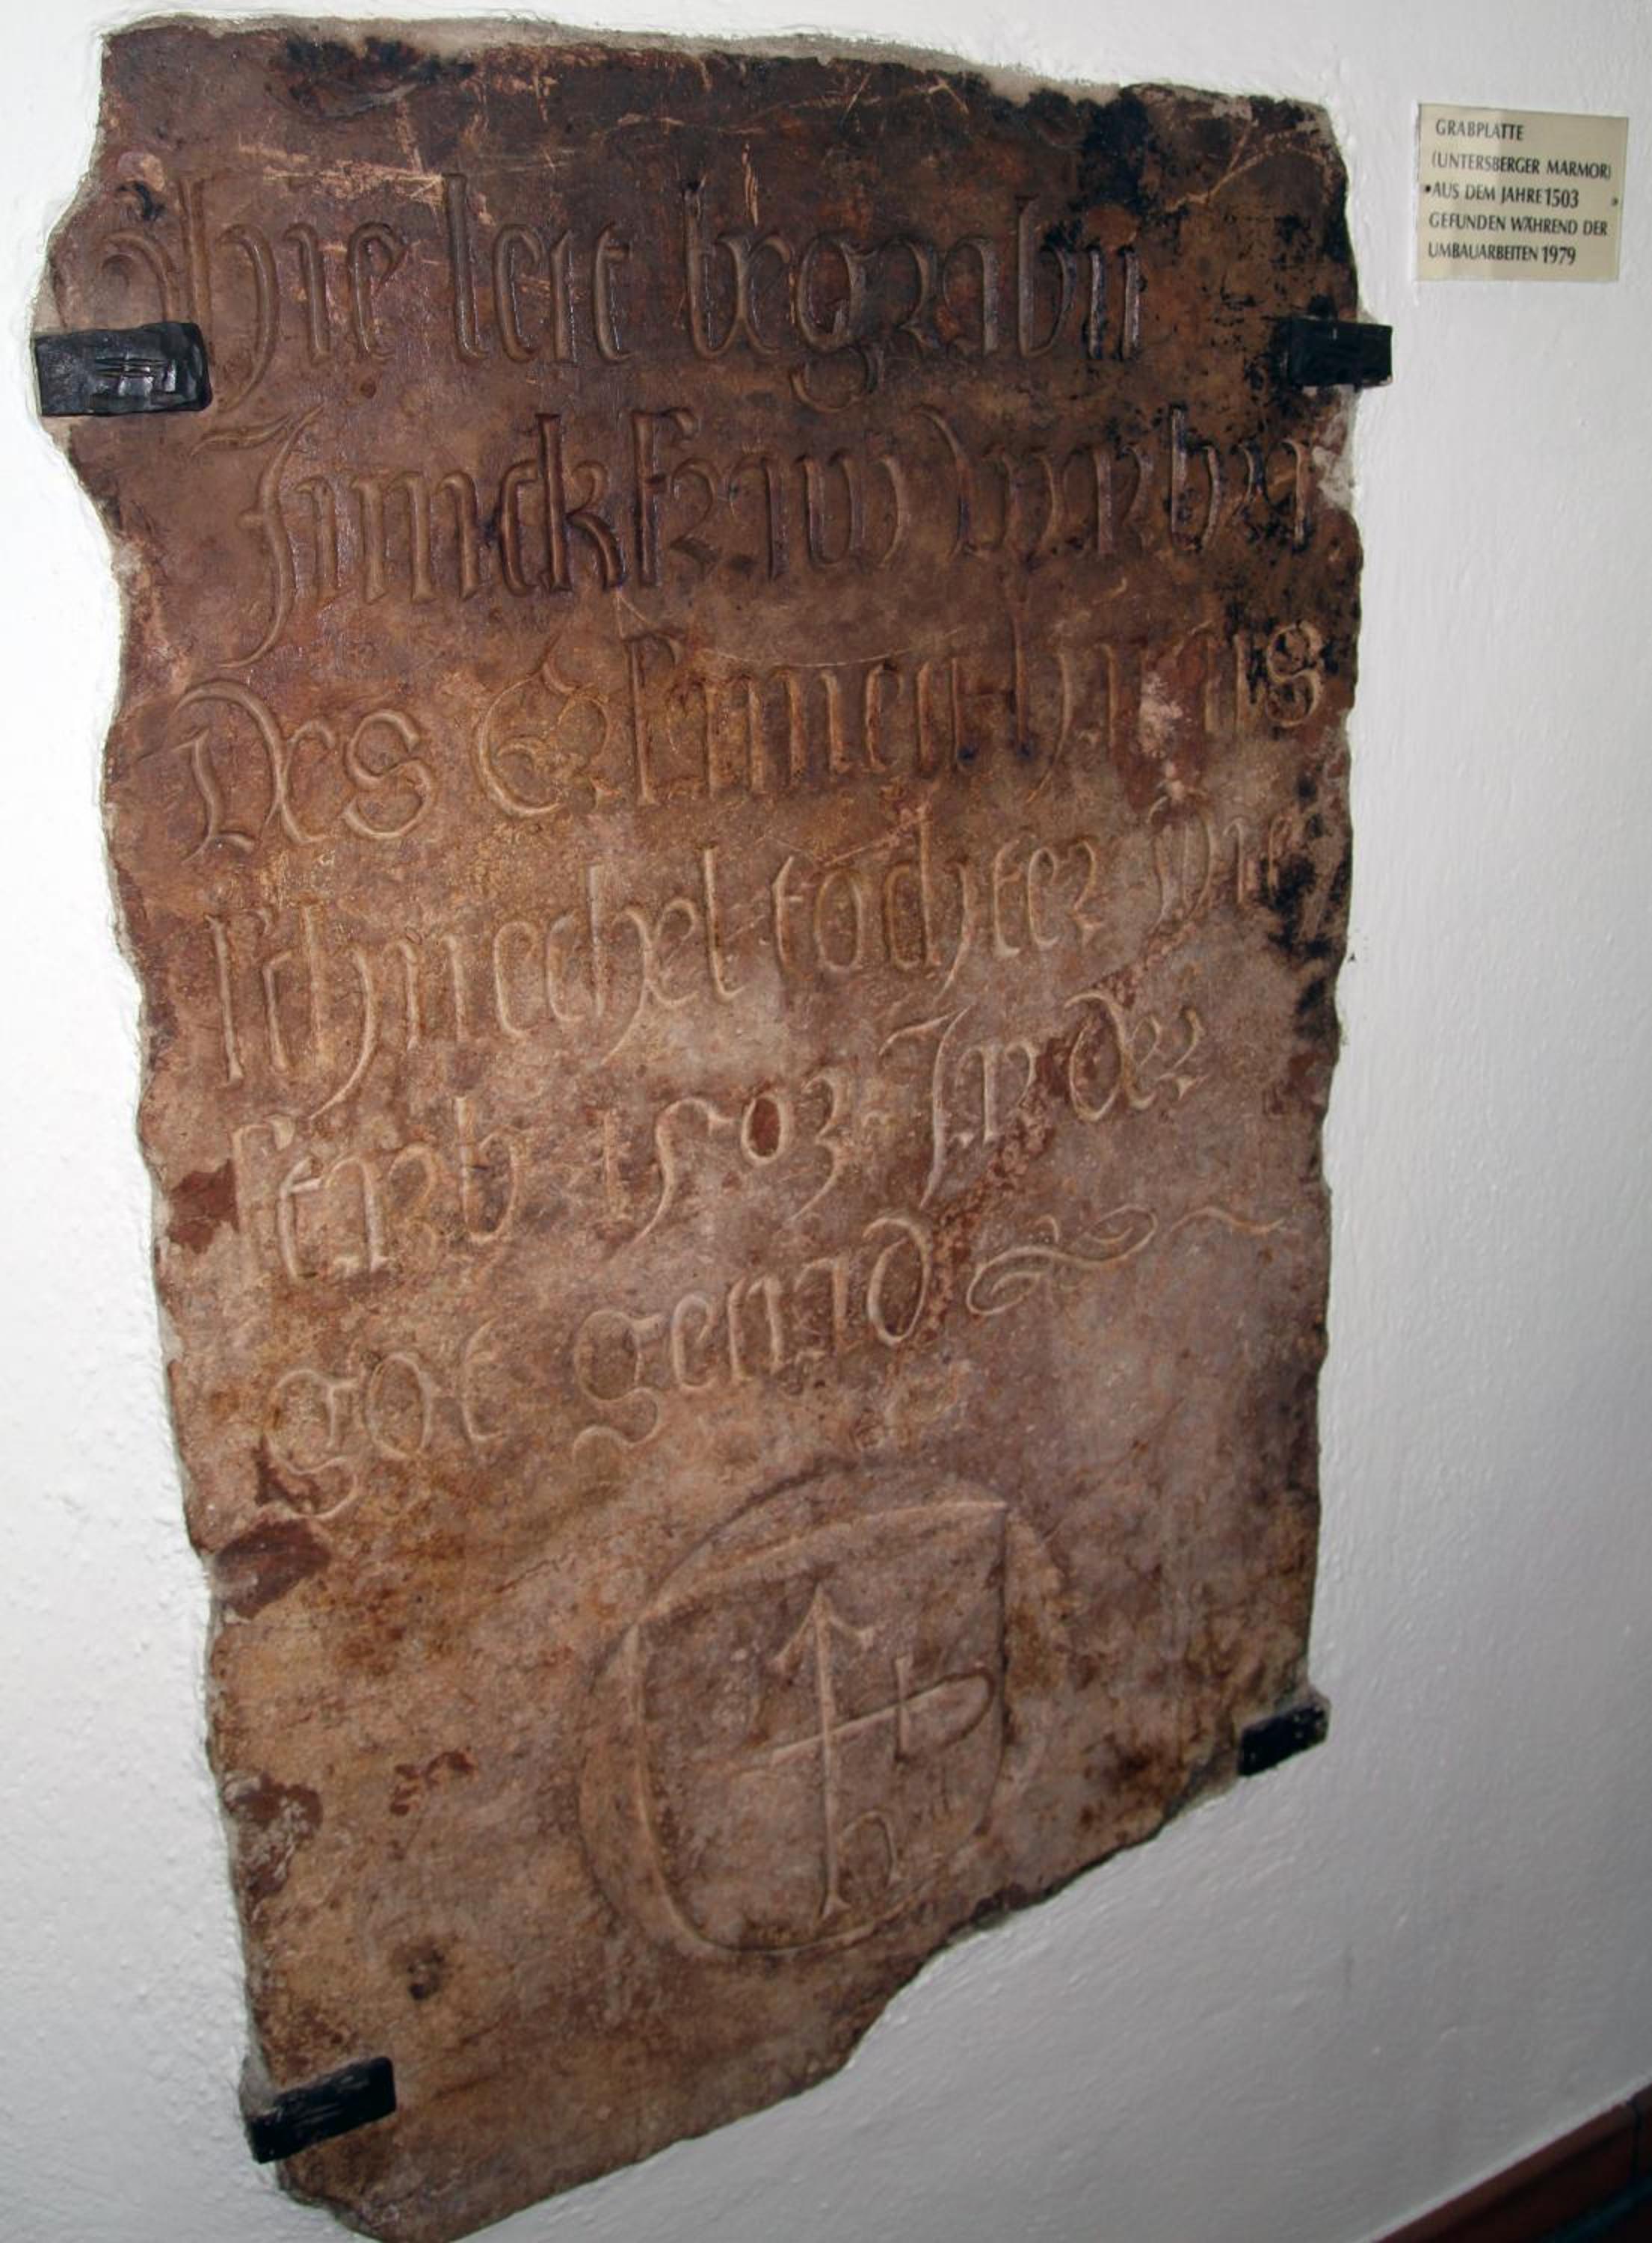 hie leit begrabn
Junckfraw barbra
Des Ersamen hanns
schnechel tochter Die
starb 1503 In der
got genad
GRABPLATTE
(UNTERSBERGER MARMOR)
AUS DEM JAHRE 1503
GEFUNDEN WÄHREND DER
UMBAUARBEITEN 1979